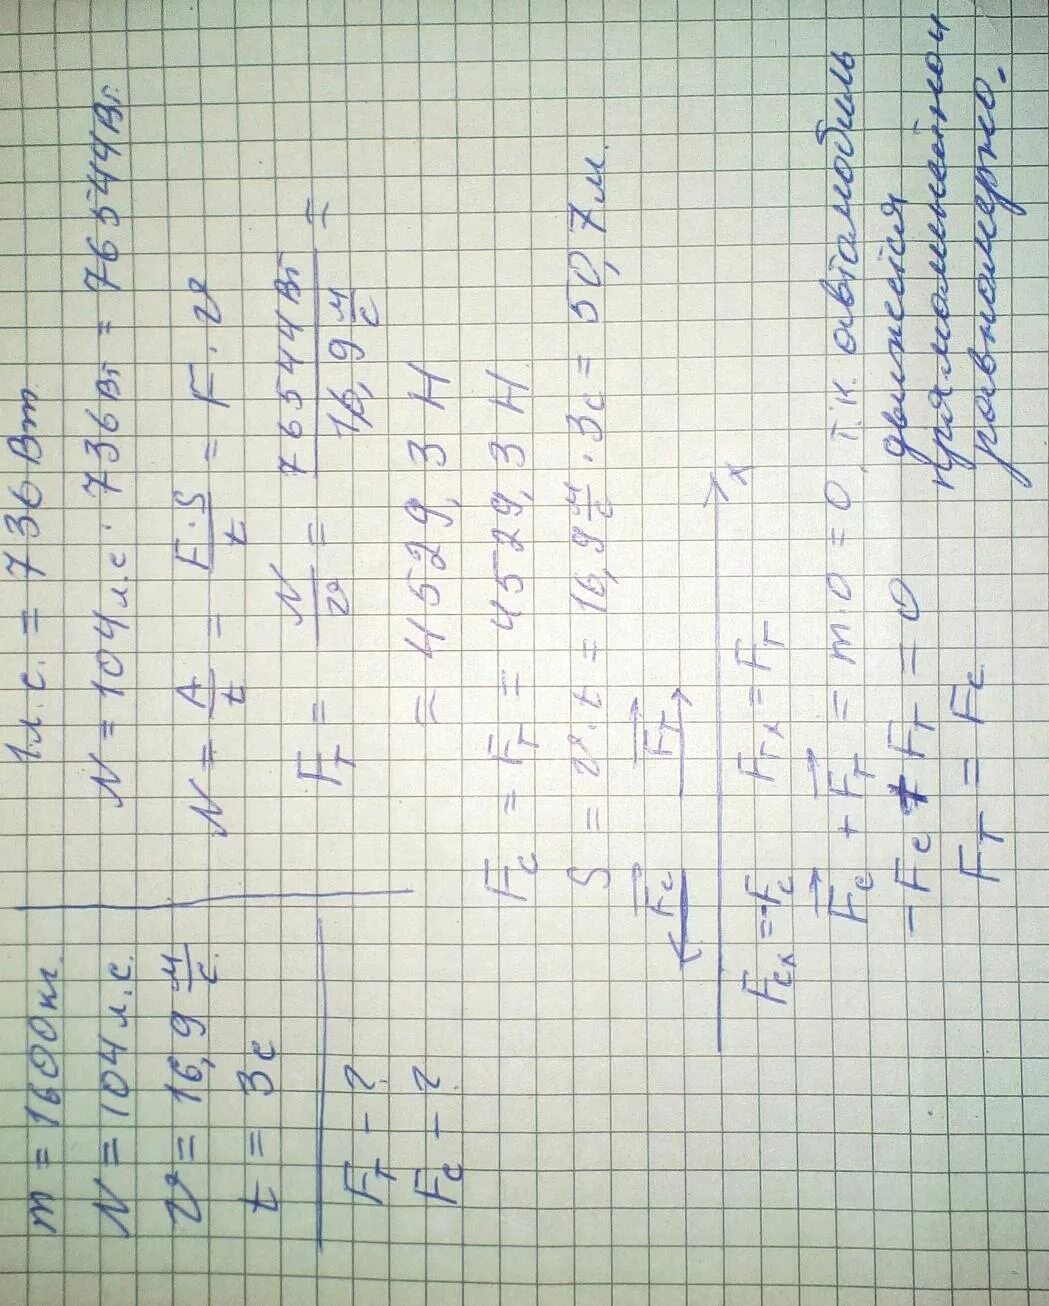 m = 1600кг.
N = 104 л.с.
v = 16,9 м/с
t = 3с
Fт - ?
Fс - ?
1л.с. = 736Вт
N = 104л.с · 736Вт = 76544Вт.
N = A/t = F·S/t = F · v
Fт = N/v = 76544Вт/16,9 м/с =
= 4529,3 Н
Fс = Fт = 4529,3 Н
S = v·t = 16,9 м/с · 3с = 50,7м.
Fс Fт
x
Fсх = -Fс Fтх = Fт
Fс + Fт = m·0 = 0, т.к автамобиль
движется
прямолинейной
равномерно.
-Fс + Fт = 0
Fт = Fс